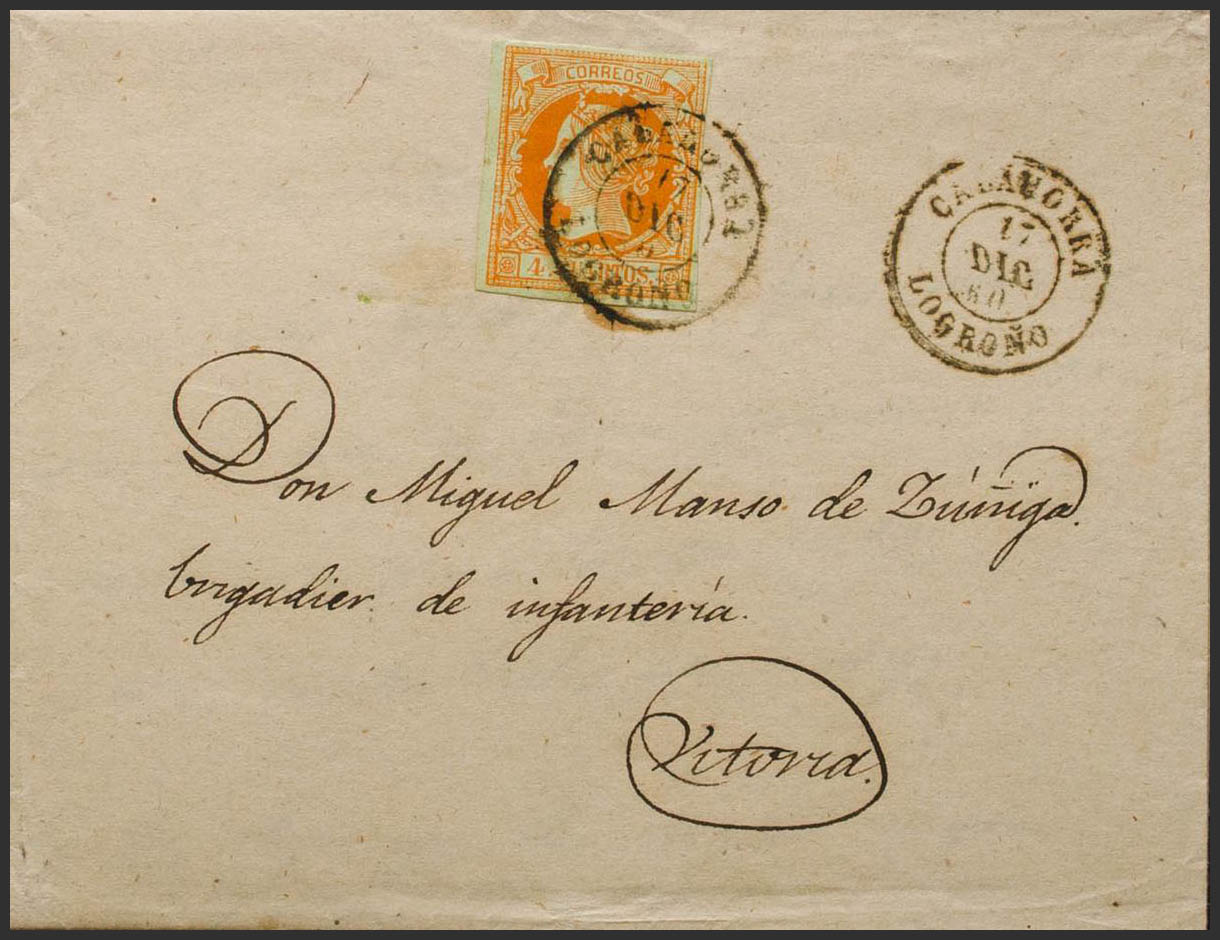 CORREOS
4 CUARTOS.
CALAHORRA
17
DIC
LOGROÑO
CALAHORRA
17
DIC
60
LOGROÑO
Don Miguel Manso de Zúñiga.
brigadier. de infantería.
Vitoria.